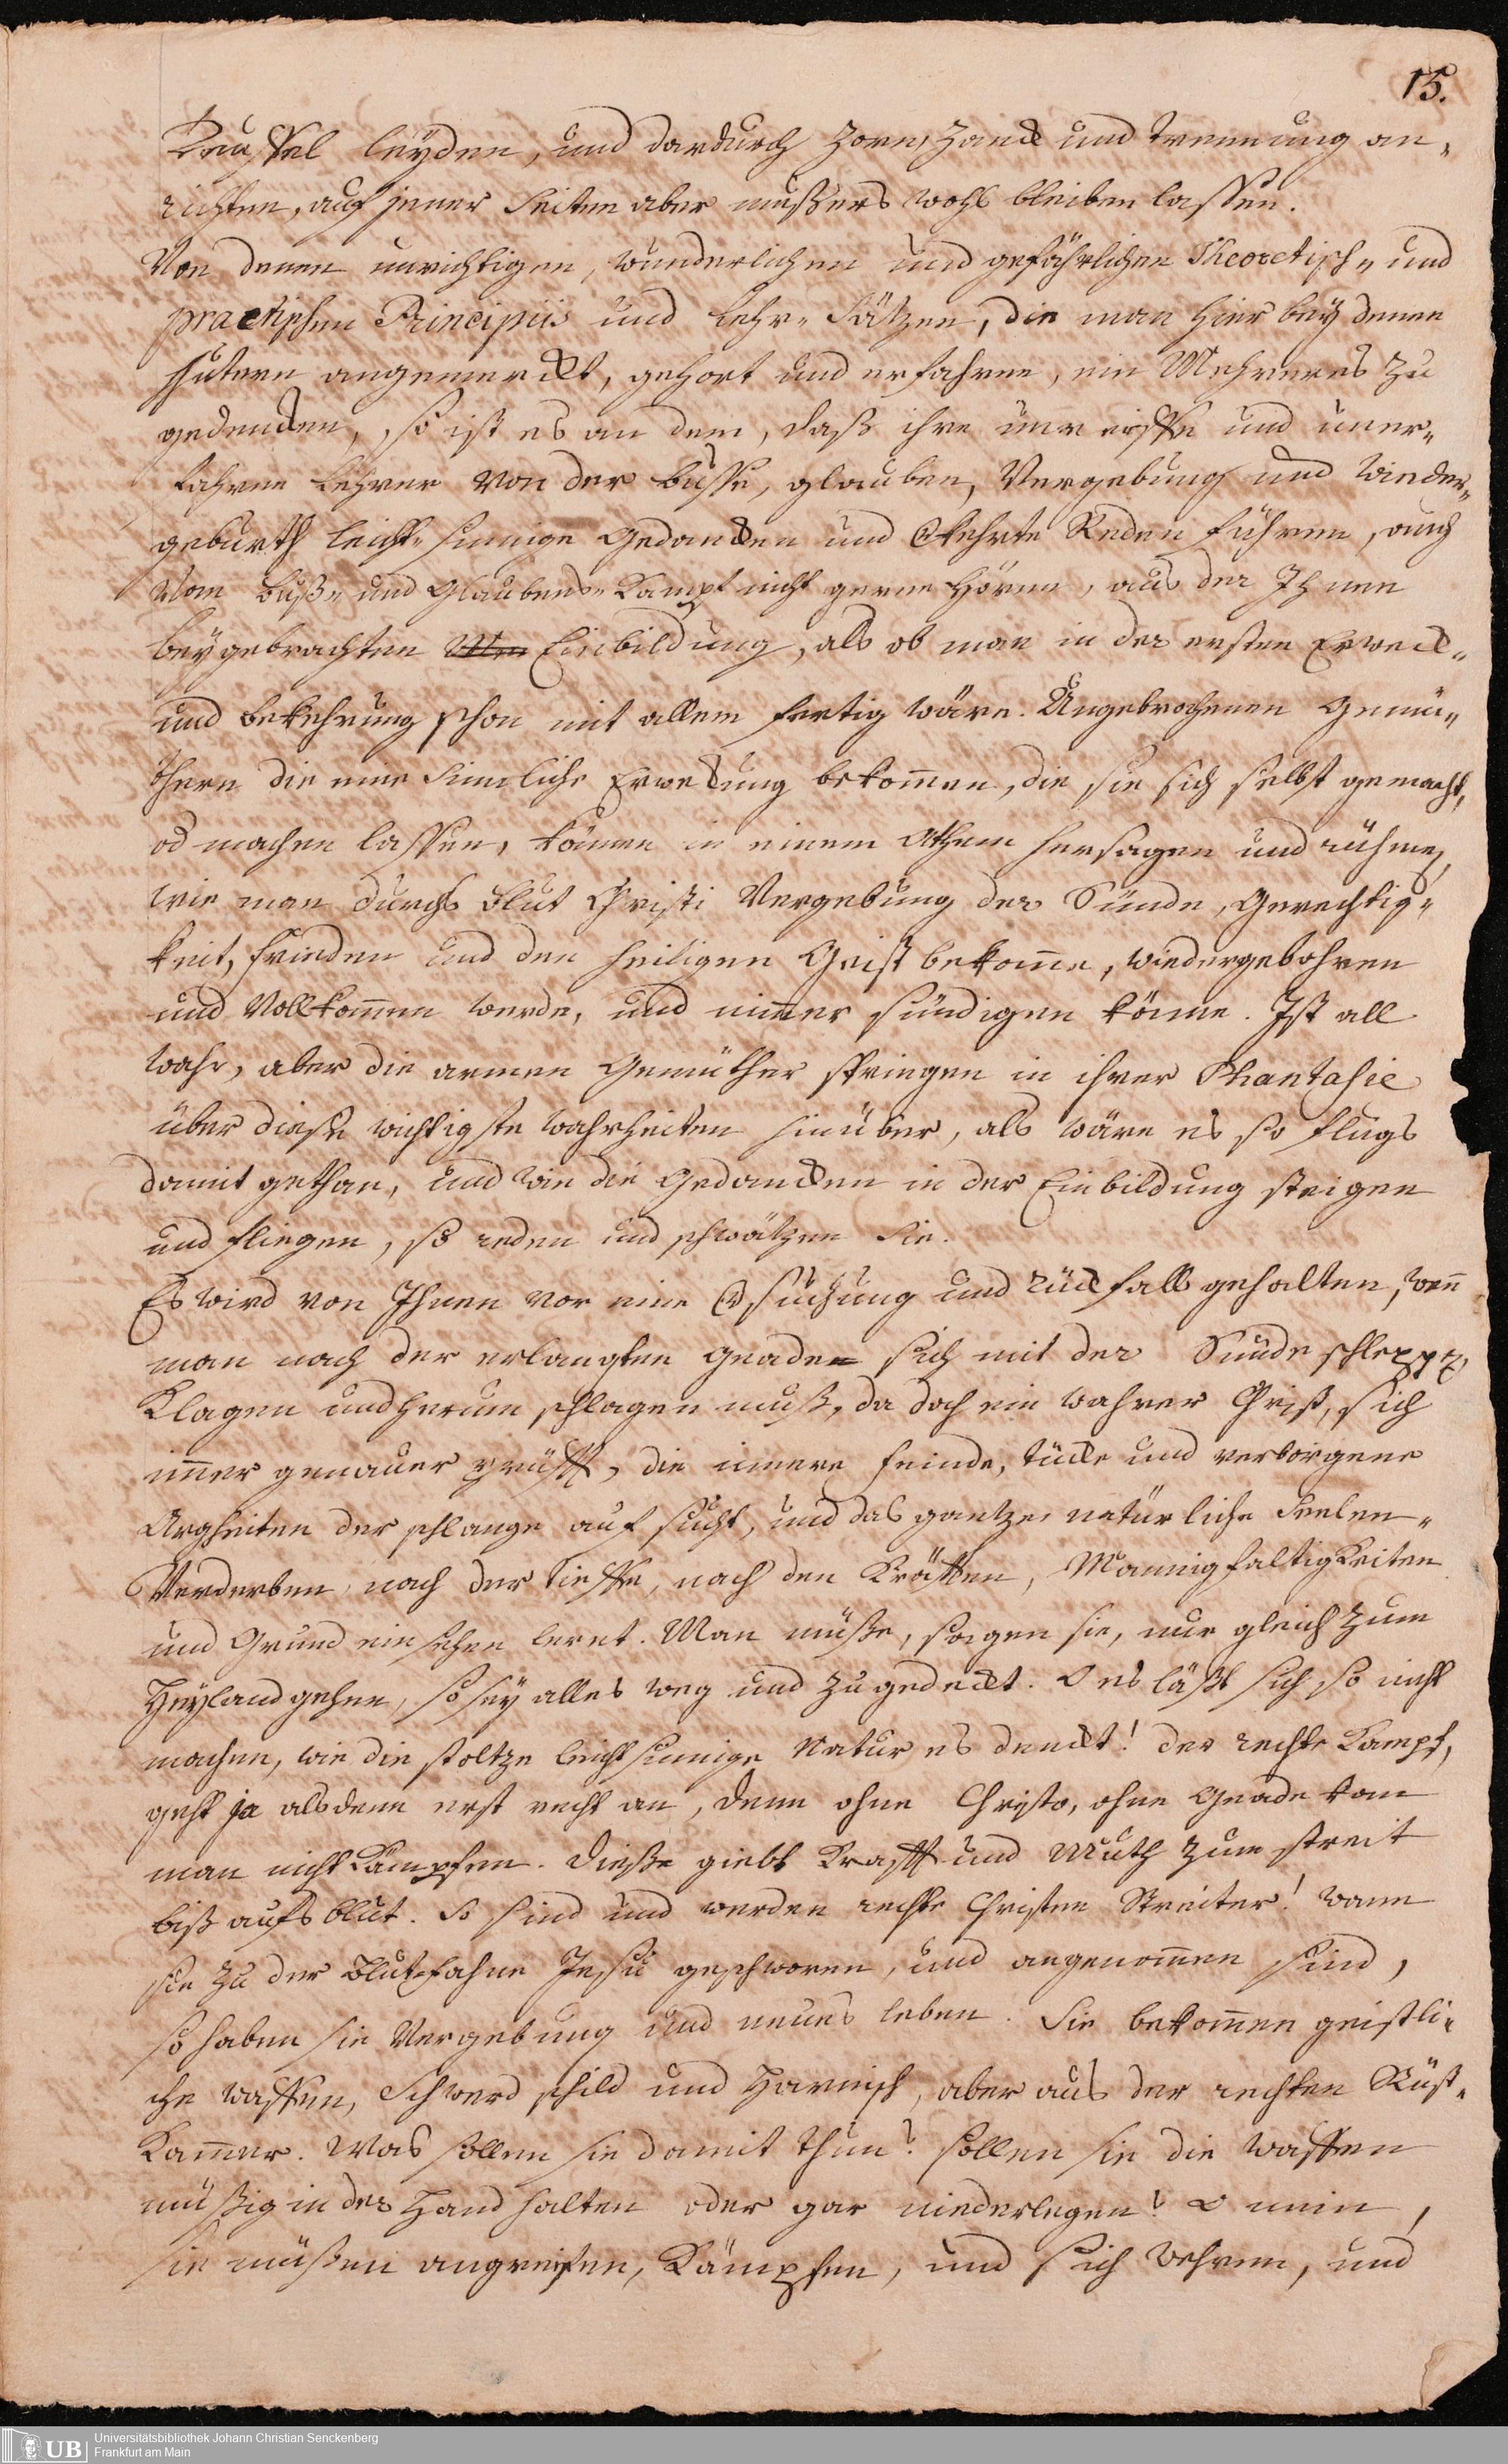 15.
Teuffel leyden, und dardurch Zorn, Zanck und trennung an„
richten, auf jener Seiten aber mußers wohl bleiben lassen.
Von denen unrichtigen, wunderlichen und gefährlichen Theoretisch„ und
practischen Principiis und Lehr„ Sätzen, die man hier bey denen
hütern angemerckt, gehört und erfahren, ein Mehreres zu
gedencken, so ist es an dem, daß ihre unreiffe und uner„
fahrne Lehrer von der busse, glauben, Vergebung und wieder„
geburth leicht„ sinnige Gedancken und Reden führen, auch
vom buß„ und Glaubens„ Kampf nicht gerne hören, aus der Ihnen
beygebrachten Einbildung, als ob man in der ersten Erweck„
und bekehrung schon mit allem fertig wäre. Ungebrochenen Gemü„
thern die eine Sinnliche Erweckung bekommen, die sie sich selbst gemacht,
od machen lassen, können in einem Athem hersagen und rühmen,
wie man durchs blut Christi Vergebung der Sünde, Gerechtig„
keit, frieden und den heiligen Geist bekomme, wiedergebohren
und Vollkommen werde, und nimmer sündigen könne. Ist all
wahr, aber die armen Gemüther springen in ihrer Phantasie
über diese wichtigste wahrheiten hinüber, als wäre es so flugs
damit gethan, und wie die Gedancken in der Einbildung steigen
und fliegen, so reden und schwätzen Sie.
Es wird von Ihnen vor eine Versuchung und rückfall gehalten, wenn
man nach der erlangten Gnade sich mit der Sünde schleppen,
Klagen und herum schlagen muß, da doch ein wahrer Christ, sich
immer genauer prüfft, die innere feinde, tücke und verborgene
Argheiten der schlange auf sucht, und das gantze natürliche Seelen„
Verderben, nach der tieffe, nach den Kräfften, Mannigfaltigkeiten
und Grund einsehen lernt. Man müße, sagen sie, nur gleich zum
Heyland gehen, so sey alles weg und zugedeckt. O es läßt sich so nicht
machen, wie die stoltze leichtsinnige Natur es denckt! der rechte Kampf,
geht ja alsdenn erst recht an, denn ohne Christo, ohne Gnade kan
man nicht kämpfen. Dieße giebt Krafft und Muth zum streit
biß aufs blut. So sind und werden rechte Christen Streiter! wann
sie zu der blut„fahne Jesu geschworen, und angenommen sind,
so haben sie Vergebung und neues leben. Sie bekommen geistli„
che waffen, Schwerd schild und Harnisch, aber aus der rechten Rüst„
Kammer. Was sollen sie damit thun? sollen sie die waffen
müßig in der Hand halten oder gar niederlegen? O nein,
sie müßen angreifen, Kämpfen, und sich wehren, und
UB
Universitätsbibliothek Johann Christian Senckenberg
Frankfurt am Main